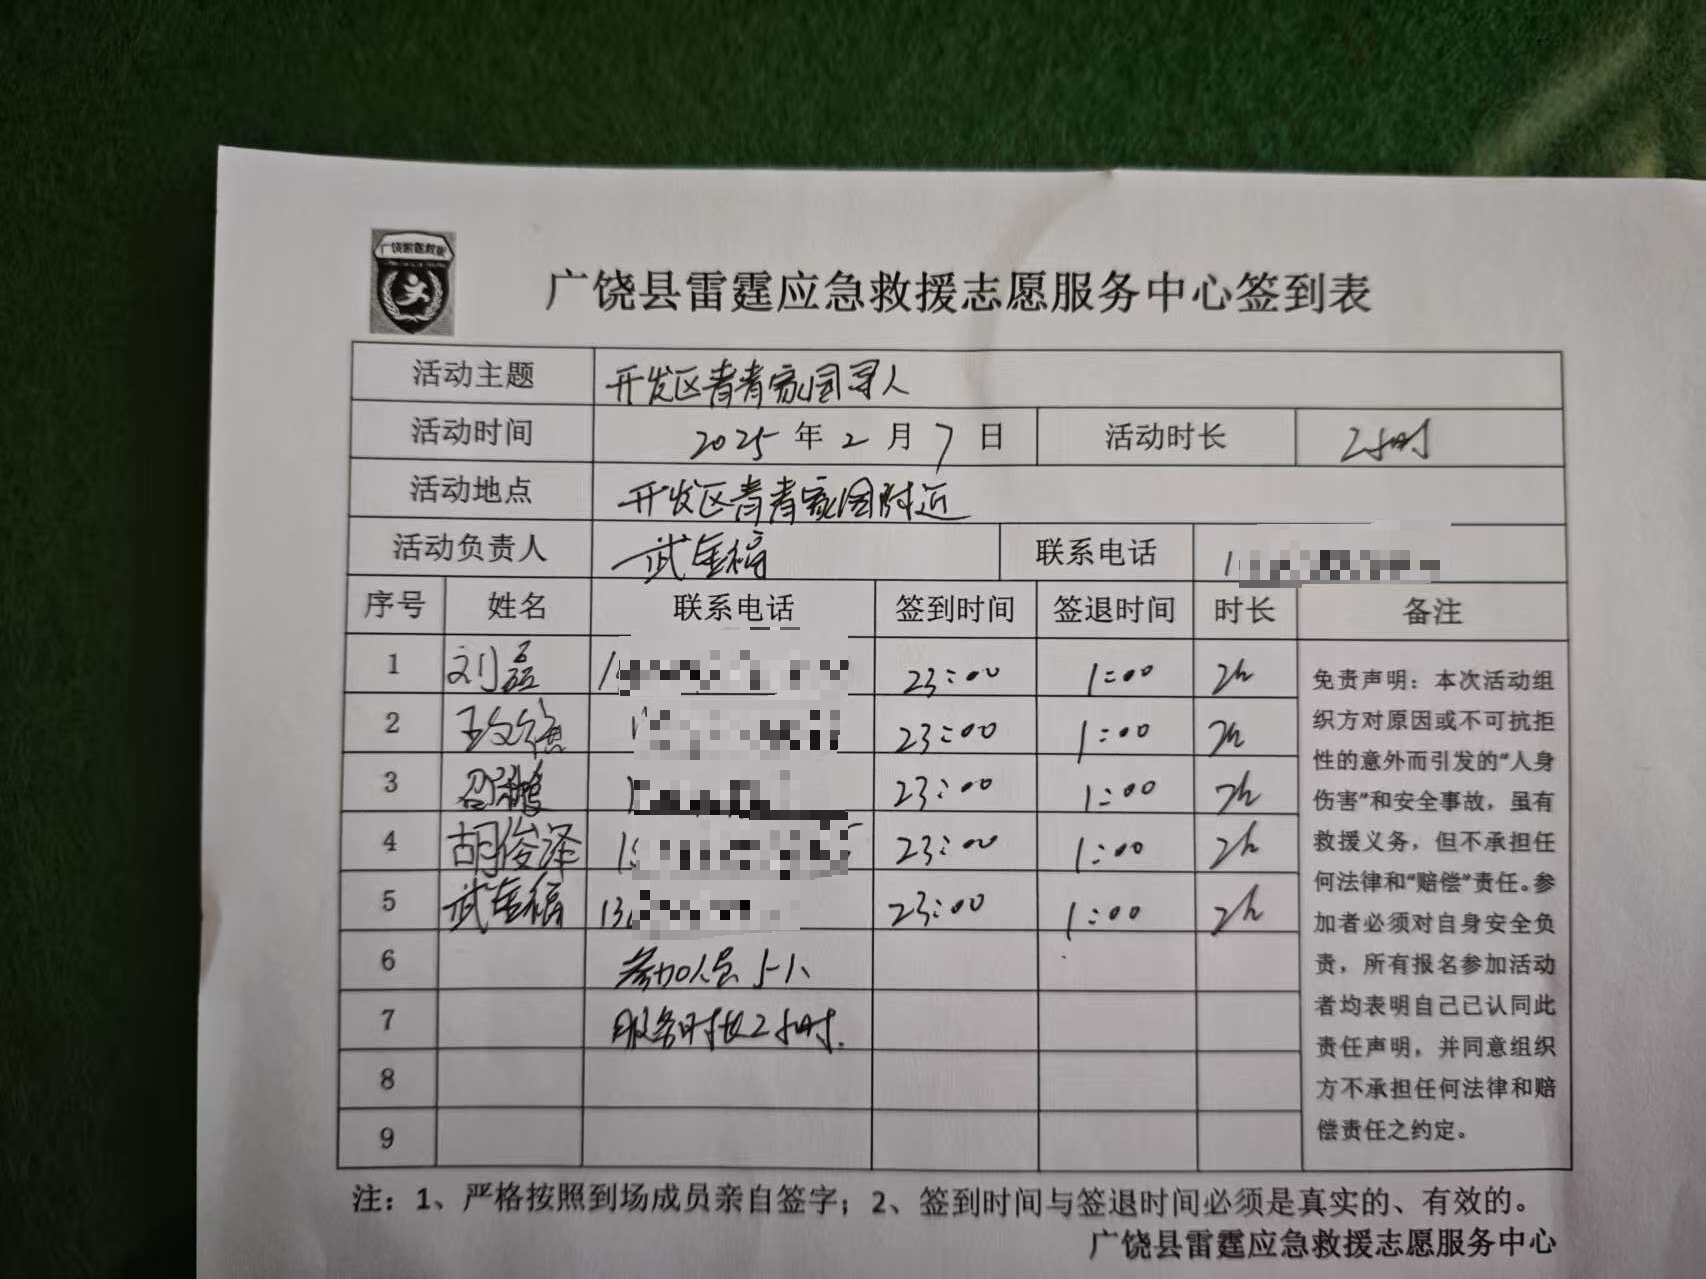 广饶雷霆救援
广饶县雷霆应急救援志愿服务中心签到表
活动主题 开发区青青家园寻人
活动时间 2025年2月7日 活动时长 2小时
活动地点 开发区青青家园附近
活动负责人 武金福 联系电话 1
序号 姓名 联系电话 签到时间 签退时间 时长 备注
1 刘磊 1 23:00 1:00 2h
2 王文德 1 23:00 1:00 2h
3 邵鹏 1 23:00 1:00 2h
4 胡俊泽 1 23:00 1:00 2h
5 武金福 13 23:00 1:00 2h
6 参加人员5人
7 服务时长2小时.
8
9
免责声明：本次活动组
织方对原因或不可抗拒
性的意外而引发的“人身
伤害”和安全事故，虽有
救援义务，但不承担任
何法律和“赔偿”责任。参
加者必须对自身安全负
责，所有报名参加活动
者均表明自己已认同此
责任声明，并同意组织
方不承担任何法律和赔
偿责任之约定。
注：1、严格按照到场成员亲自签字；2、签到时间与签退时间必须是真实的、有效的。
广饶县雷霆应急救援志愿服务中心